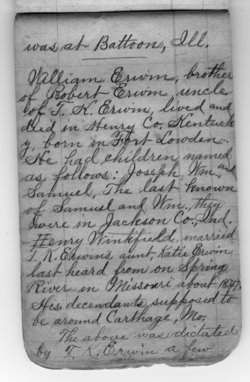 was at Battoon, Ill.
William Erwin, brother
of Robert Erwin, uncle
of T. K. Erwin, lived and
died in Henry Co. Kentuck
y, born in Fort Lowden.
He had children named
as follows: Joseph, Wm. and
Samuel, The last known
of Samuel and Wm., they
were in Jackson Co., Ind.
Henry Winkfield, married
T. K. Erwins aunt, Katie Erwin
last heard from on Spring
River in Missouri about 1847,
His decendants supposed to
be around Carthage, Mo.
The above was dictated
by T. K. Erwin a few